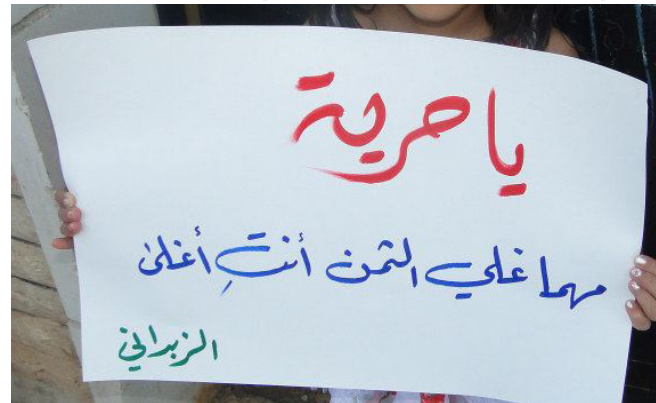 يا حرية
مهما غلي الثمن أنتِ أغلى
الزبداني